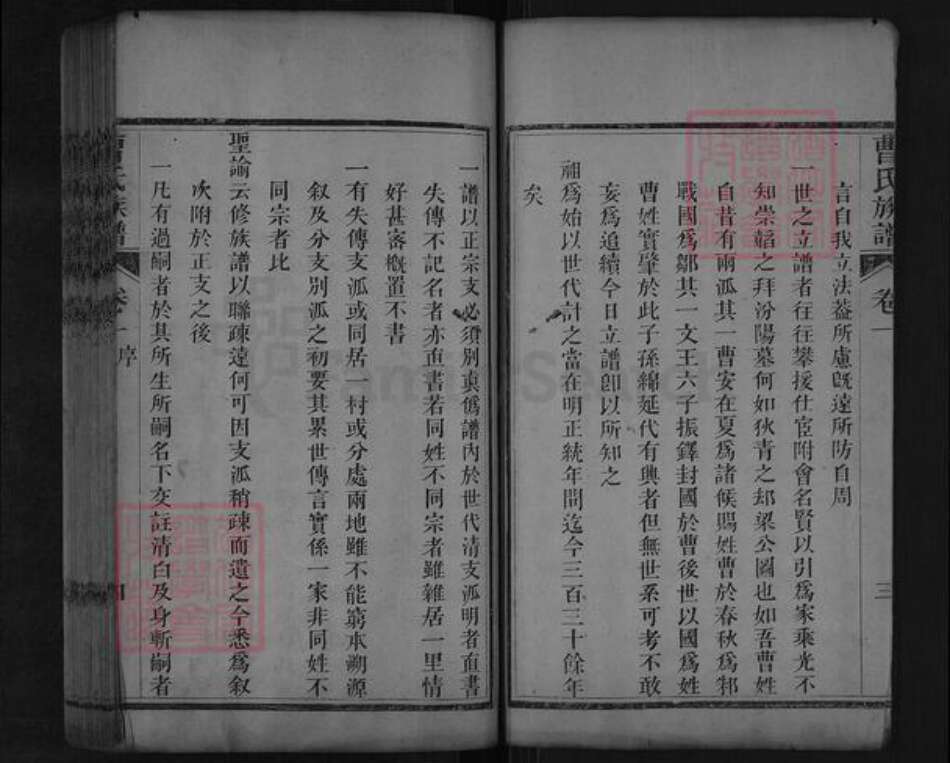 曹氏族譜
卷一
三
言自我立法葢所慮既遠所防自周
一世之立譜者往往攀援仕宦附會名賢以引爲家乘光不
知崇韜之拜汾陽墓何如狄青之却梁公圖也如吾曹姓
自昔有兩派其一曹安在夏爲諸候賜姓曹於春秋爲邾
戰國爲鄒其一文王六子振鐸封國於曹後世以國爲姓
曹姓實肇於此子孫綿延代有興者但無世系可考不敢
妄爲追續今日立譜卽以所知之
祖爲始以世代計之當在明正統年間迄今三百三十餘年
矣
一譜以正宗支必須別真僞譜內於世代清支派明者直書
失傳不記名者亦直書若同姓不同宗者雖雜居一里情
好甚密概置不書
一有失傳支派或同居一村或分處兩地雖不能窮本朔源
叙及分支別派之初要其累世傳言實係一家非同姓不
同宗者比
聖諭云修族譜以聯疎遠何可因支派稍疎而遺之今悉爲叙
次附於正支之後
一凡有過嗣者於其所生所嗣名下交註清白及身斬嗣者
曹氏族譜
卷一
序
四
FamilySearch